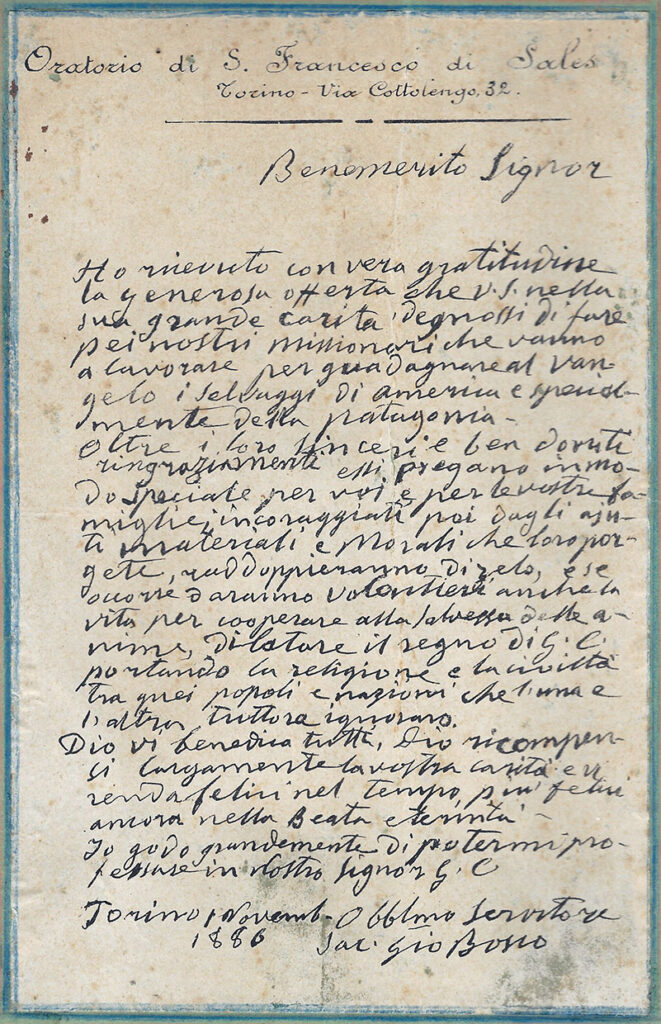 Oratorio di S. Francesco di Sales
Torino - Via Cottolengo, 32.
Benemerito Signor
Ho ricevuto con vera gratitudine
la generosa offerta che V. S. nella
sua grande carità degnossi di fare
pei nostri missionari che vanno
a lavorare per guadagnare al Van-
gelo i selvaggi di america e special-
mente della patagonia -
Oltre i loro sinceri e ben dovuti
ringraziamenti essi pregano in mo-
do speciale per voi e per le vostre fa-
miglie, incoraggiati poi dagli aju-
ti materiali e Morali che loro por-
gete, raddoppieranno di zelo, e se
occorre daranno volentieri anche la
vita per cooperare alla salvezza delle a-
nime, dilatare il regno di G. C.
portando la religione e la civiltà
tra quei popoli e nazioni che l'una e
l'altra tuttora ignorano.
Dio vi benedica tutti, Dio ricompen-
si largamente la vostra carità e vi
renda felici nel tempo, più felici
ancora nella Beata eternità -
Io godo grandemente di potermi pro-
fessare in Nostro Signor G. C
Torino 1 Novemb - Obblmo Servitore
1886 Sac. Gio Bosco